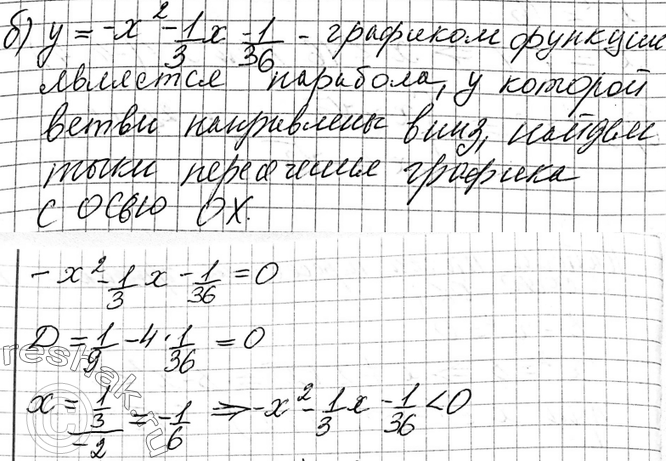 б) y = -x² - 1/3 x - 1/36 - графиком функции
является парабола, у которой
ветви направлены вниз, найдем
точки пересечения графика
с осью OX.
-x² - 1/3 x - 1/36 = 0
D = 1/9 - 4 · 1/36 = 0
x = (1/3)/(-2) = -1/6 ⇒ -x² - 1/3 x - 1/36 < 0
reshak.ru